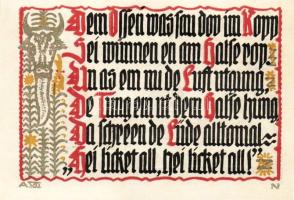 Dem Ossen was sau dov im Kopp
Sei winnen en am Halse rop
Un as em nu de Luft utgung,
De Tung ut dem Halse hung,
Da schreen de Lüde alltomal
„Hei licket all, hei licket all!"